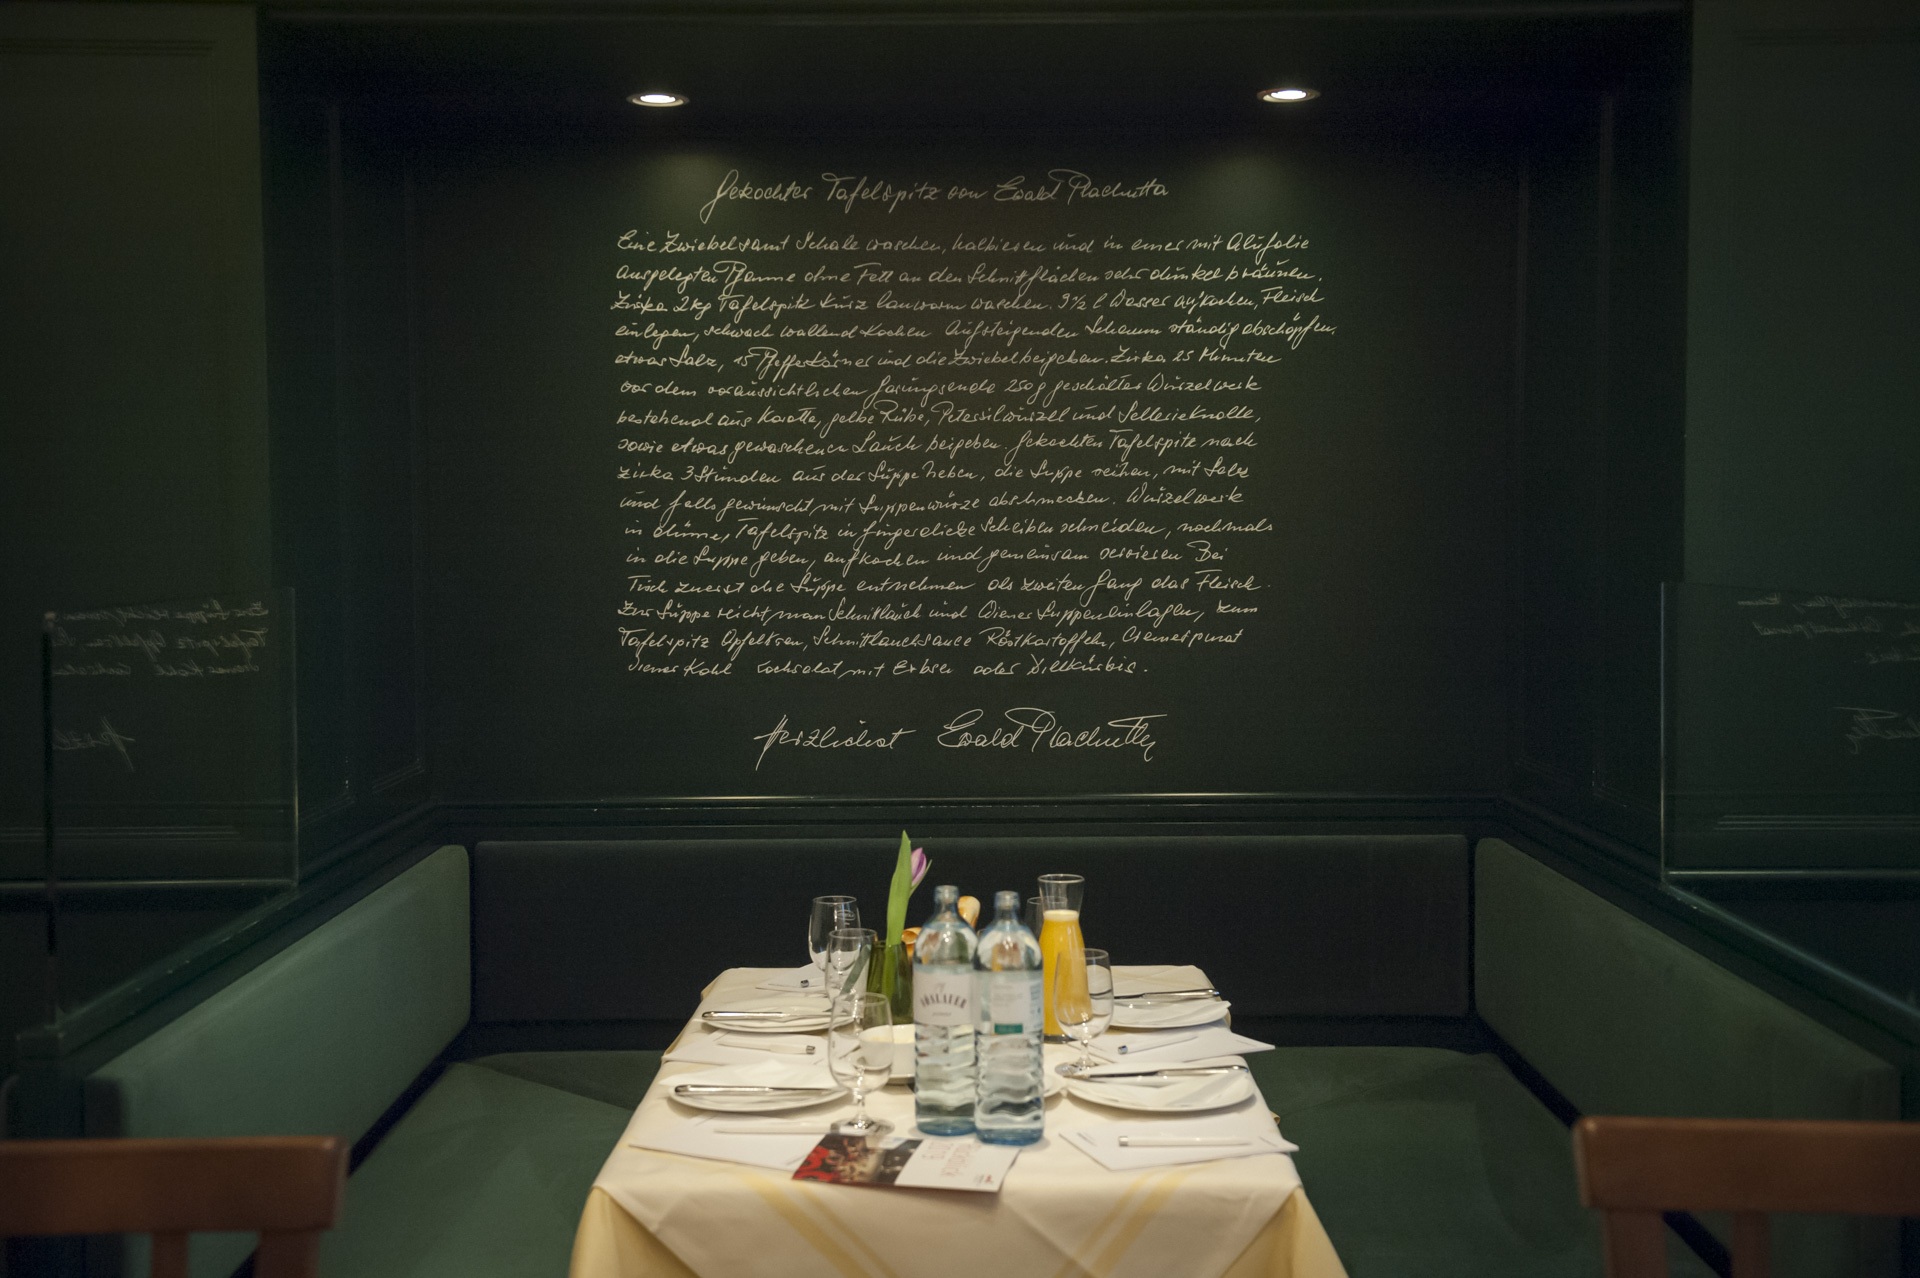 Gekochter Tafelspitz von Ewald Plachutta
Eine Zwiebel samt Schale waschen, halbieren und in einer mit Alufolie
ausgelegten Pfanne ohne Fett an den Schnittflächen sehr dunkel bräunen.
Zirka 2 kg Tafelspitz kurz lauwarm waschen. 3½ l Wasser aufkochen, Fleisch
einlegen, schwach wallend kochen. Aufsteigenden Schaum ständig abschöpfen.
etwas Salz, 15 Pfefferkörner und die Zwiebel beigeben. Zirka 25 Minuten
vor dem voraussichtlichen Garungsende 250 g geschältes Wurzelwerk
bestehend aus Karotte, gelbe Rübe, Petersilwurzel und Sellerieknolle,
sowie etwas gewaschenen Lauch beigeben. Gekochten Tafelspitz nach
zirka 3 Stunden aus der Suppe heben, die Suppe seihen, mit Salz
und falls gewünscht mit Suppenwürze abschmecken. Wurzelwerk
in dünne, Tafelspitz in fingerdicke Scheiben schneiden, nochmals
in die Suppe geben, aufkochen und gemeinsam servieren Bei
Tisch zuerst die Suppe entnehmen als zweiten Gang das Fleisch.
Zur Suppe reicht man Schnittlauch und Wiener Suppeneinlagen, zum
Tafelspitz Apfelkren, Schnittlauchsauce Röstkartoffeln, Cremespinat
Wiener Kohl Kochsalat mit Erbsen oder Dillkürbis.
Herzlichst Ewald Plachutta
VÖSLAUER